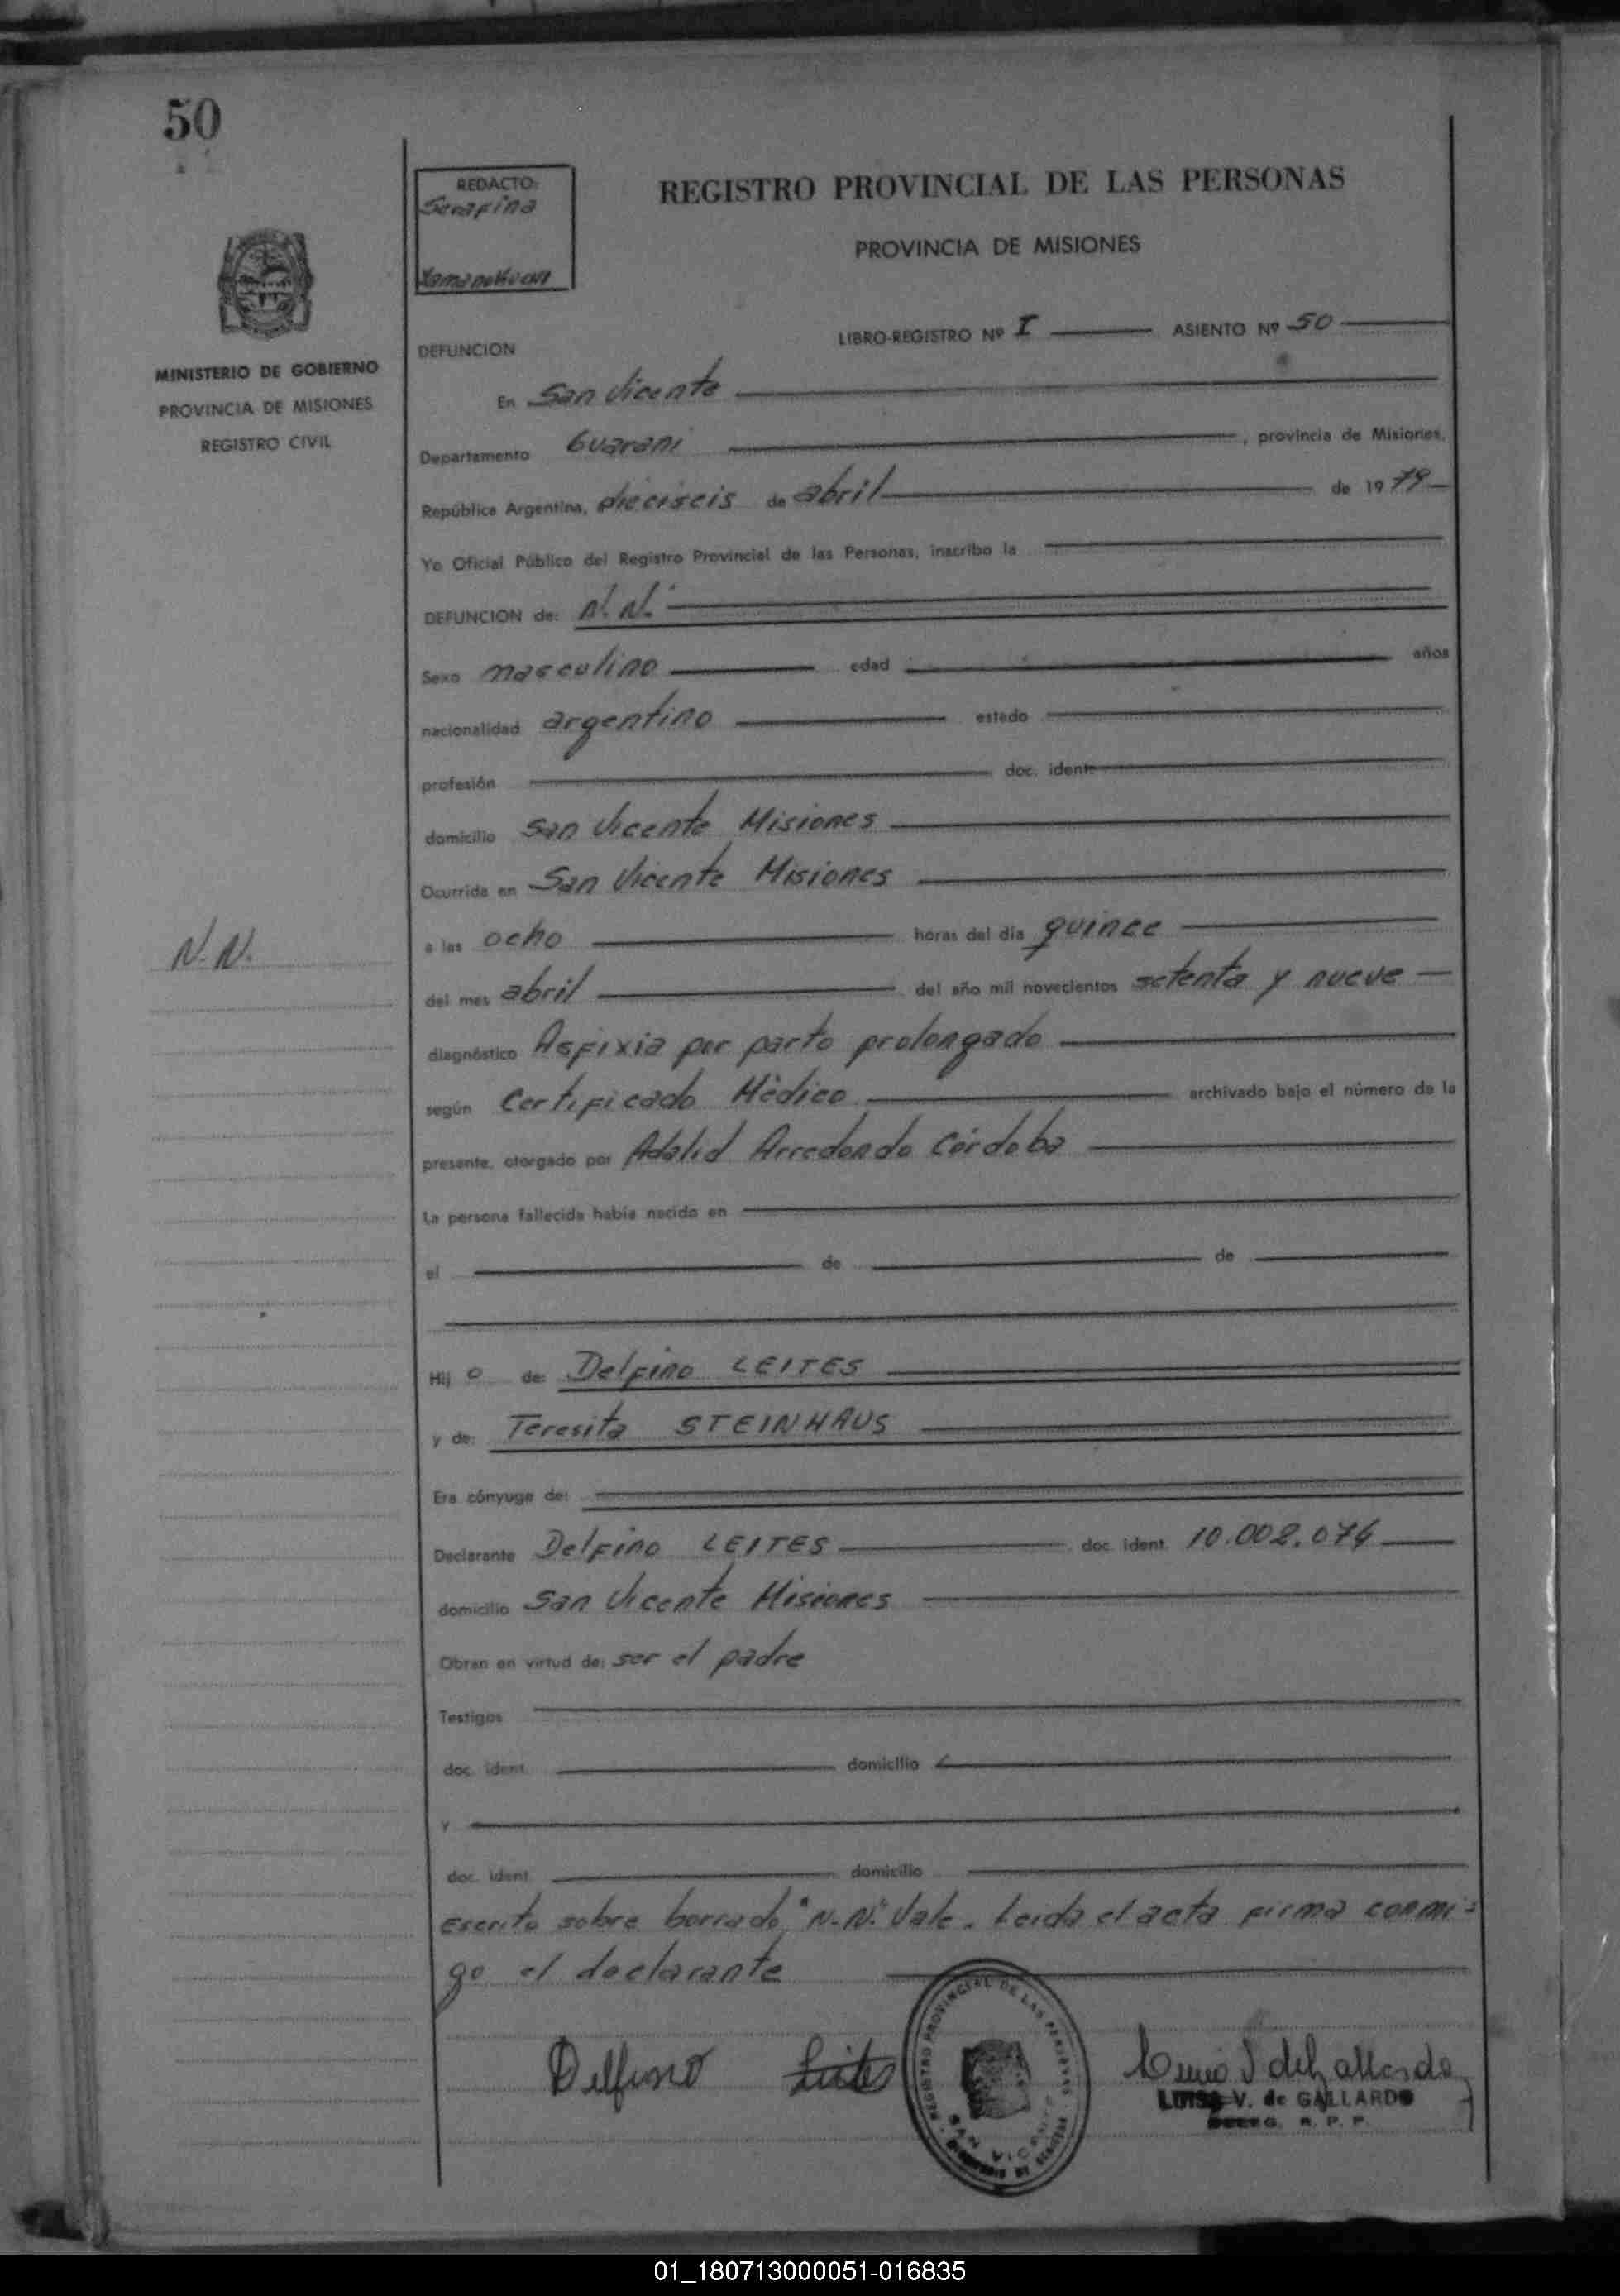 50
REDACTO:
Serafina
REGISTRO PROVINCIAL DE LAS PERSONAS
PROVINCIA DE MISIONES
LIBRO-REGISTRO Nº I ASIENTO Nº 50
DEFUNCION
MINISTERIO DE GOBIERNO
PROVINCIA DE MISIONES
REGISTRO CIVIL
En San Vicente
Departamento Guaraní, provincia de Misiones,
República Argentina, dieciseis de abril de 1979
Yo Oficial Público del Registro Provincial de las Personas, inscribo la
DEFUNCION de: N.N.
Sexo masculino edad años
nacionalidad argentino estado
profesión doc. ident.
domicilio San Vicente Misiones
Ocurrida en San Vicente Misiones
N.N.
a las ocho horas del día quince
del mes abril del año mil novecientos setenta y nueve
diagnóstico Asfixia por parto prolongado
según Certificado Médico archivado bajo el número de la
presente, otorgado por Adalid Arredondo Córdoba
La persona fallecida había nacido en
el de de
Hij o de: Delfino LEITES
y de: Teresita STEINHAUS
Era cónyuge de:
Declarante Delfino LEITES doc. ident. 10.002.074
domicilio San Vicente Misiones
Obran en virtud de: ser el padre
Testigos
doc. ident. domicilio
y
doc. ident. domicilio
Escrito sobre borrado "N.N." Vale. Leida el acta firma conmi=
go el declarante
REGISTRO PROVINCIAL DE LAS PERSONAS
SAN VICENTE
Delfino Leites
LUISA V. de GALLARDO
DELEG. R. P. P.
01_180713000051-016835